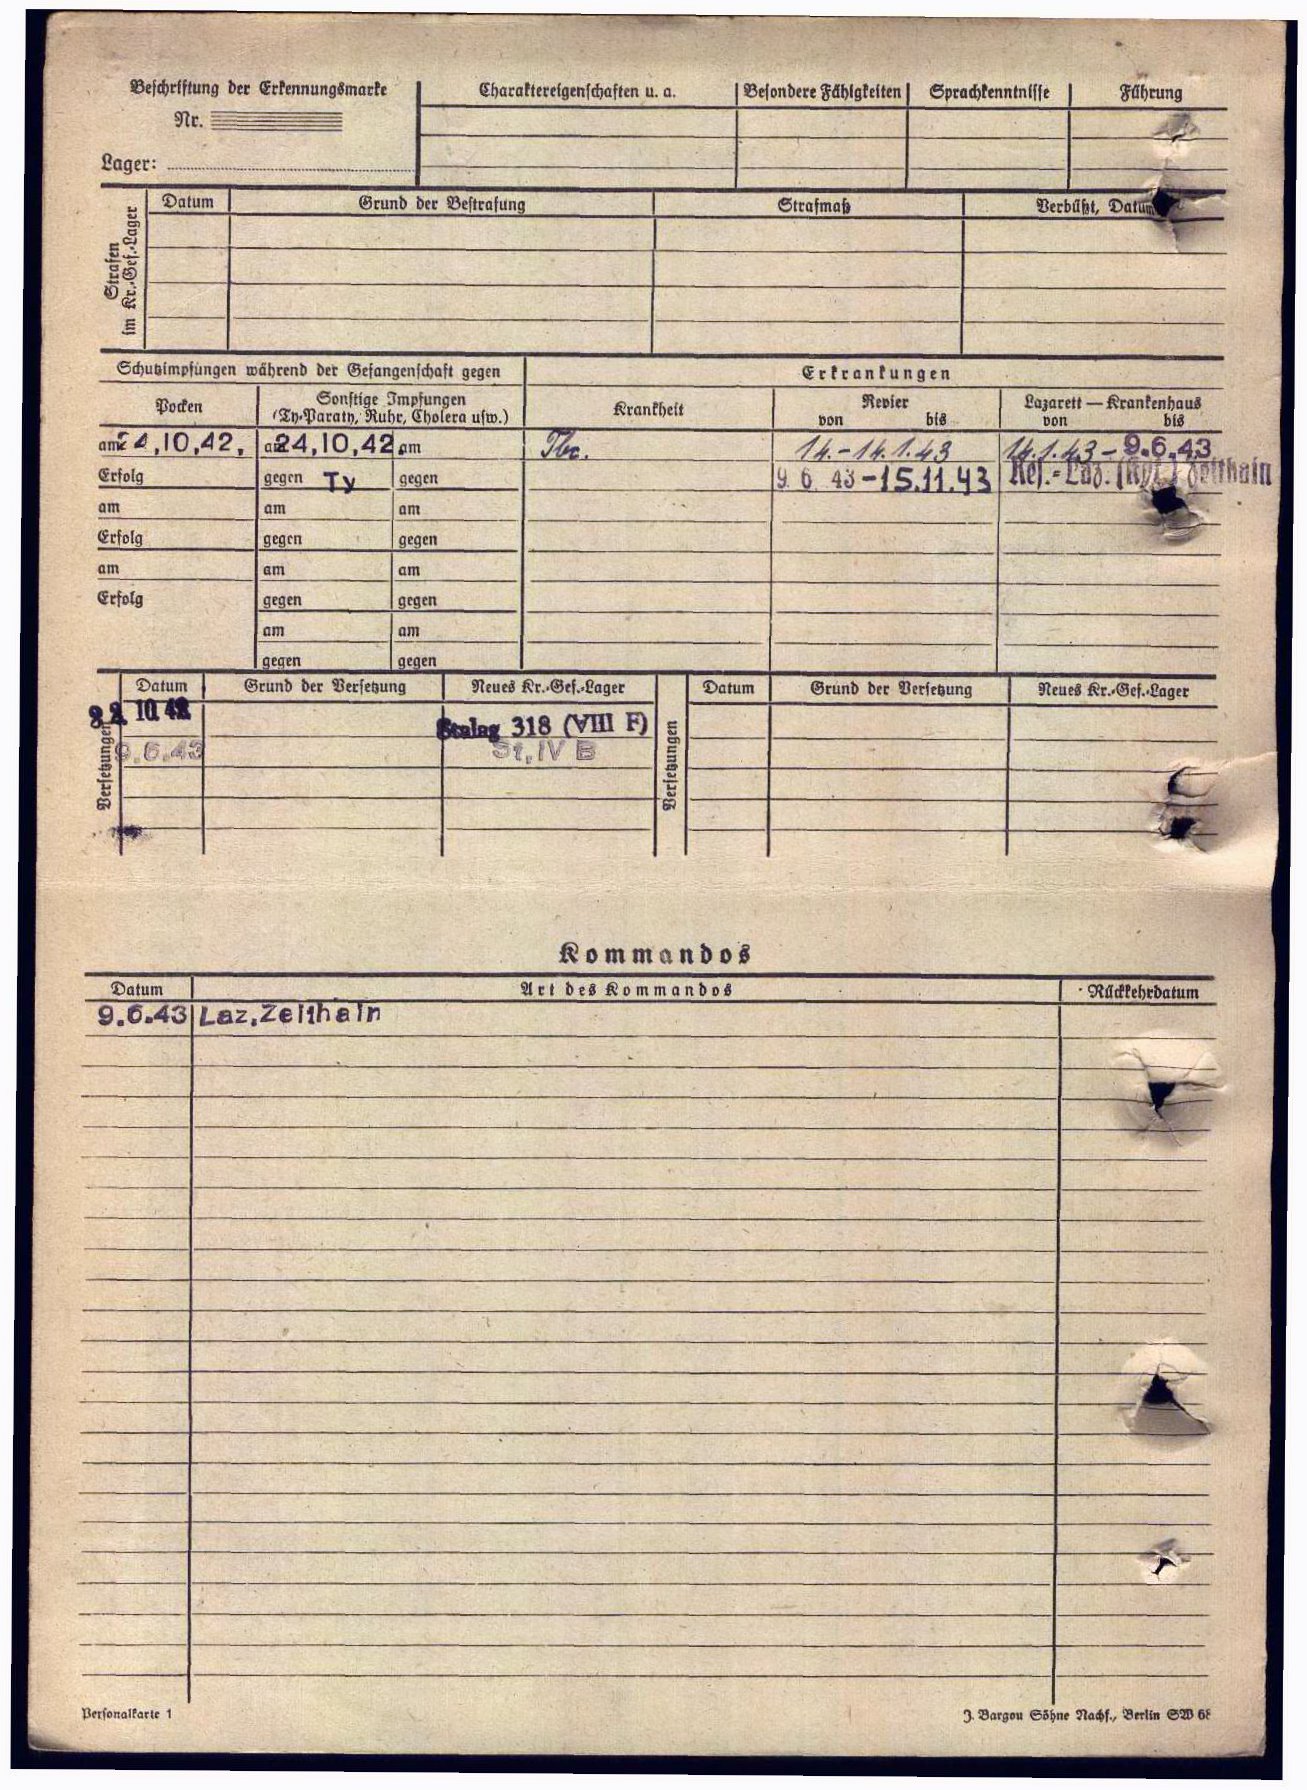 Beschriftung der Erkennungsmarke
Nr.
Lager:
Charaktereigenschaften u. a. Besondere Fähigkeiten Sprachkenntnisse Führung
Strafen
im Kr.-Gef.-Lager
Datum Grund der Bestrafung Strafmaß Verbüßt, Datum
Schutzimpfungen während der Gefangenschaft gegen Erkrankungen
Pocken
Sonstige Impfungen
(Ty-Paraty, Ruhr, Cholera usw.)
Krankheit
Revier
von bis
Lazarett — Krankenhaus
von bis
am 24,10,42, am 24,10,42 am Tbc. 14.-14.1.43 14.1.43-9.6.43
Erfolg gegen Ty gegen 9.6.43-15.11.43 Res.-Laz. Zeithain
am am am
Erfolg gegen gegen
am am am
Erfolg gegen gegen
am am
gegen gegen
Versetzungen
Datum Grund der Versetzung Neues Kr.-Gef.-Lager
10.42 Stalag 318 (VIII F)
9.6.43 St,IV B
Versetzungen
Datum Grund der Versetzung Neues Kr.-Gef.-Lager
Kommandos
Datum Art des Kommandos Rückkehrdatum
9.6.43 Laz,Zeithain
Personalkarte 1
J. Bargou Söhne Nachf., Berlin SW 68